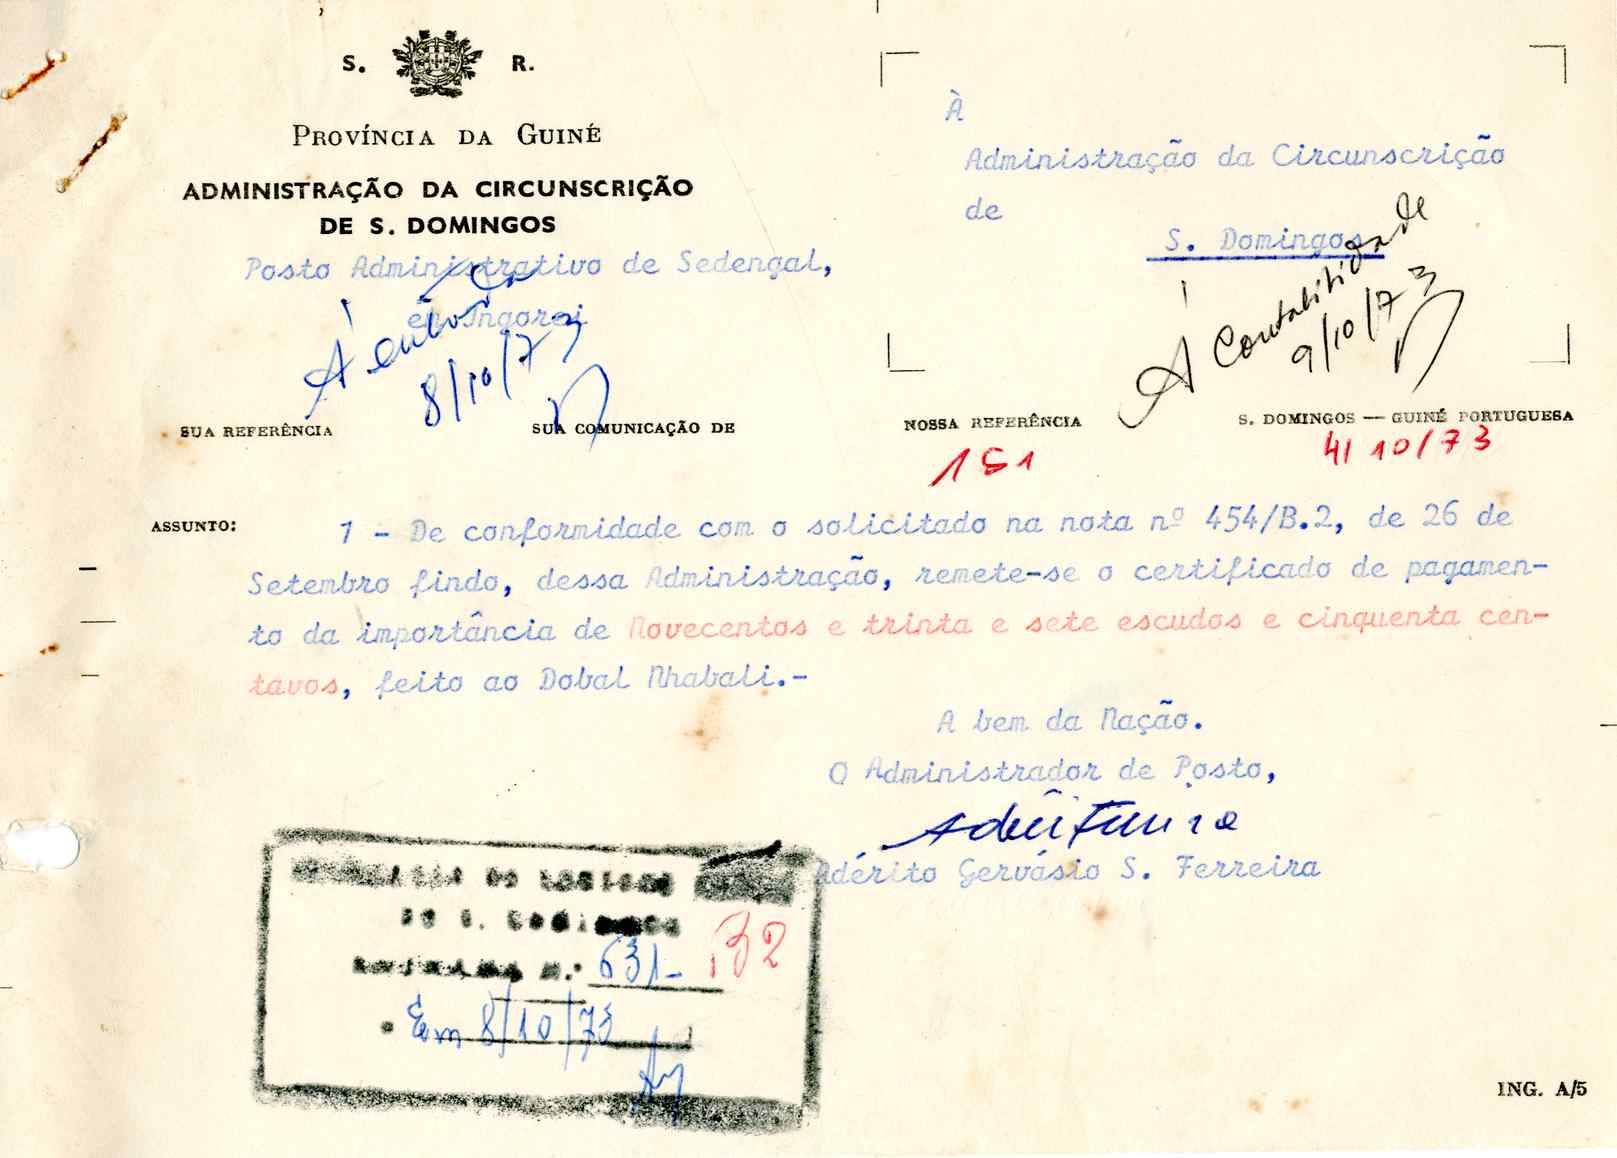 S. R.
PROVÍNCIA DA GUINÉ
ADMINISTRAÇÃO DA CIRCUNSCRIÇÃO
DE S. DOMINGOS
Posto Administrativo de Sedengal,
em Ingorei
8/10/73
À
Administração da Circunscrição
de
S. Domingos
À Contabilidade
9/10/73
SUA REFERÊNCIA
SUA COMUNICAÇÃO DE
NOSSA REFERÊNCIA
S. DOMINGOS — GUINÉ PORTUGUESA
151
4/10/73
ASSUNTO:
1 - De conformidade com o solicitado na nota nº 454/B.2, de 26 de
Setembro findo, dessa Administração, remete-se o certificado de pagamen-
to da importância de Novecentos e trinta e sete escudos e cinquenta cen-
tavos, feito ao Dobal Nhabali.-
A bem da Nação.
O Administrador de Posto,
Adérito Gervásio S. Ferreira
DE S. DOMINGOS
631- B2
Em 8/10/73
ING. A/5